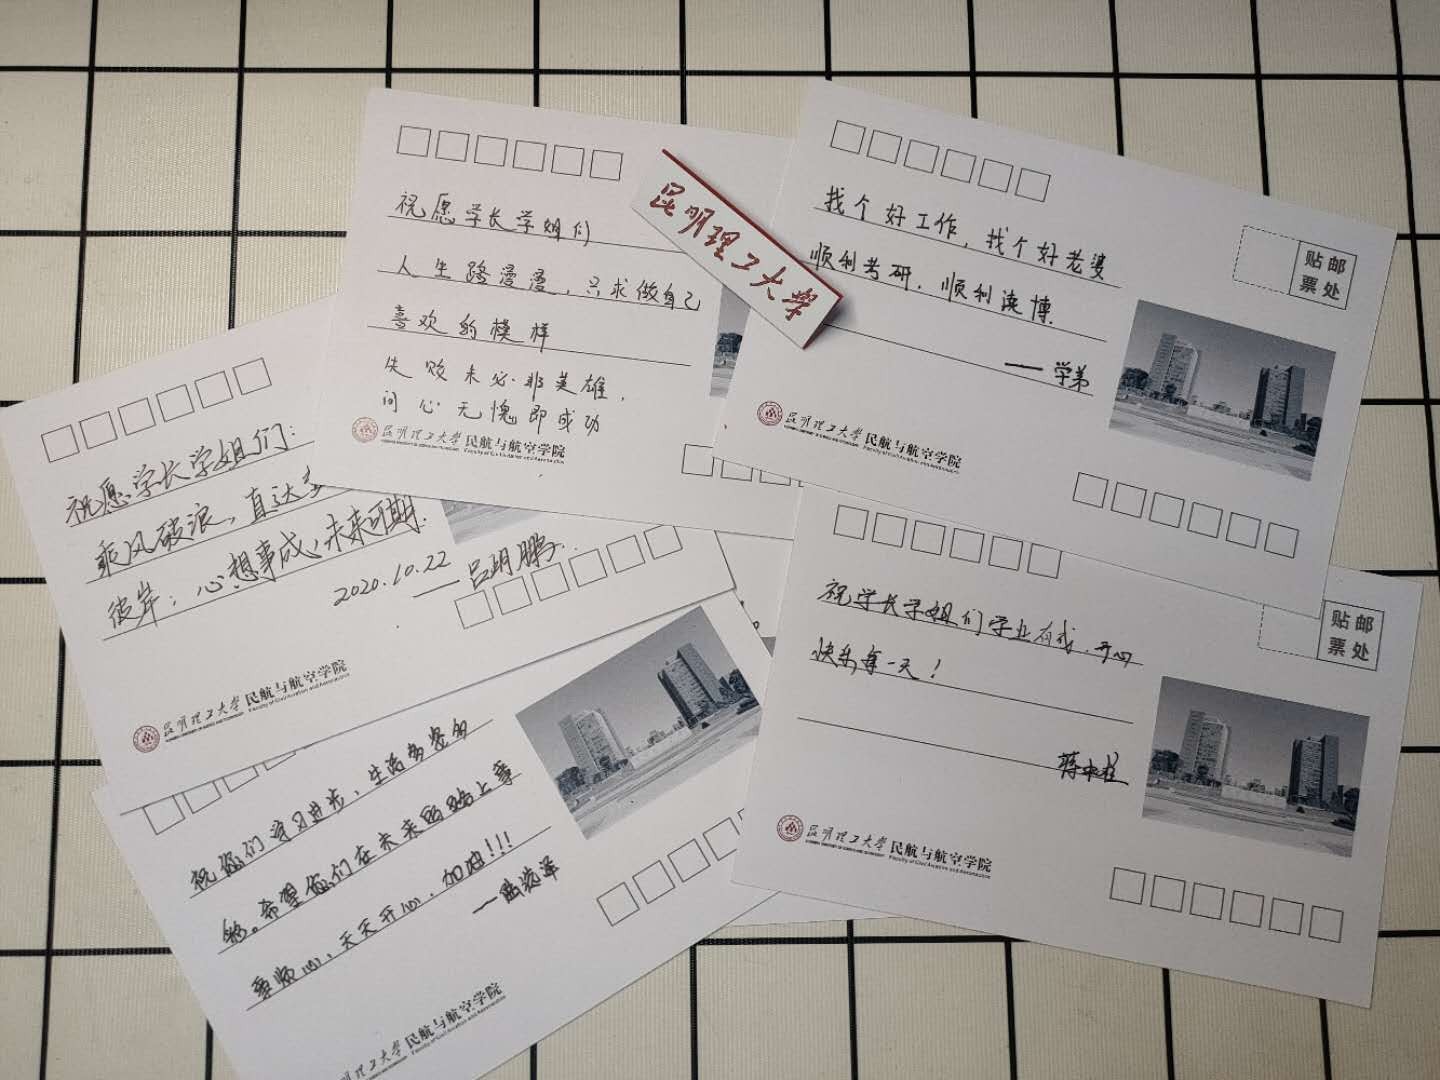 祝愿学长学姐们
人生路漫漫，只求做自己
喜欢的模样
失败未必非英雄，
问心无愧即成功
昆明理工大学 民航与航空学院
Faculty of Civil Aviation and Aeronautics
昆明理工大学
找个好工作，找个好老婆
顺利考研，顺利读博.
——学弟
贴邮
票处
昆明理工大学 民航与航空学院
Faculty of Civil Aviation and Aeronautics
祝愿学长学姐们：
乘风破浪，直达
彼岸；心想事成，未来可期.
2020.10.22 ——吕明鹏.
昆明理工大学 民航与航空学院
Faculty of Civil Aviation and Aeronautics
祝学长学姐们学业有成，开心
快乐每一天！
贴邮
票处
昆明理工大学 民航与航空学院
Faculty of Civil Aviation and Aeronautics
祝你们学习进步，生活多姿多
彩。希望你们在未来的路上事
事顺心，天天开心，加油!!!
昆明理工大学 民航与航空学院
Faculty of Civil Aviation and Aeronautics